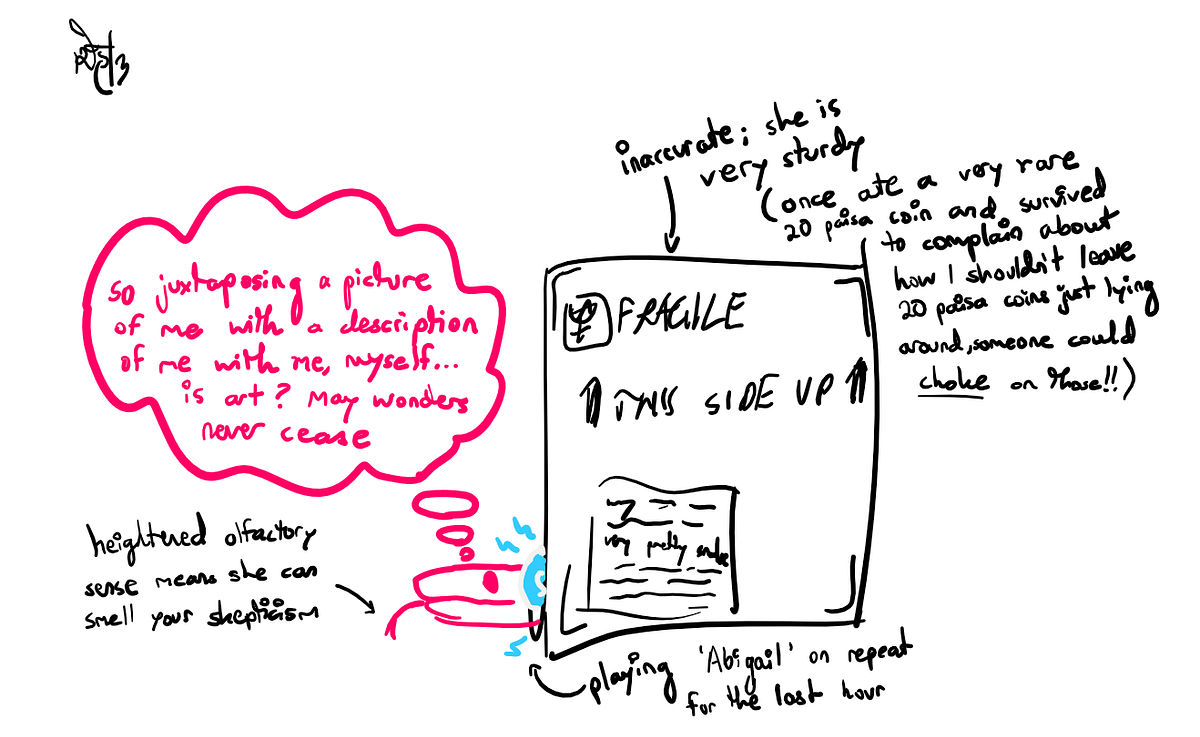 inaccurate; she is
very sturdy
(once ate a very rare
20 paisa coin and survived
to complain about
how I shouldn't leave
20 paisa coins just lying
around, someone could
choke on those!!)
So juxtaposing a picture
of me with a description
of me with me, myself...
is art? May wonders
never cease
FRAGILE
THIS SIDE UP
very pretty snake
heightened olfactory
sense means she can
smell your skepticism
playing 'Abigail' on repeat
for the last hour